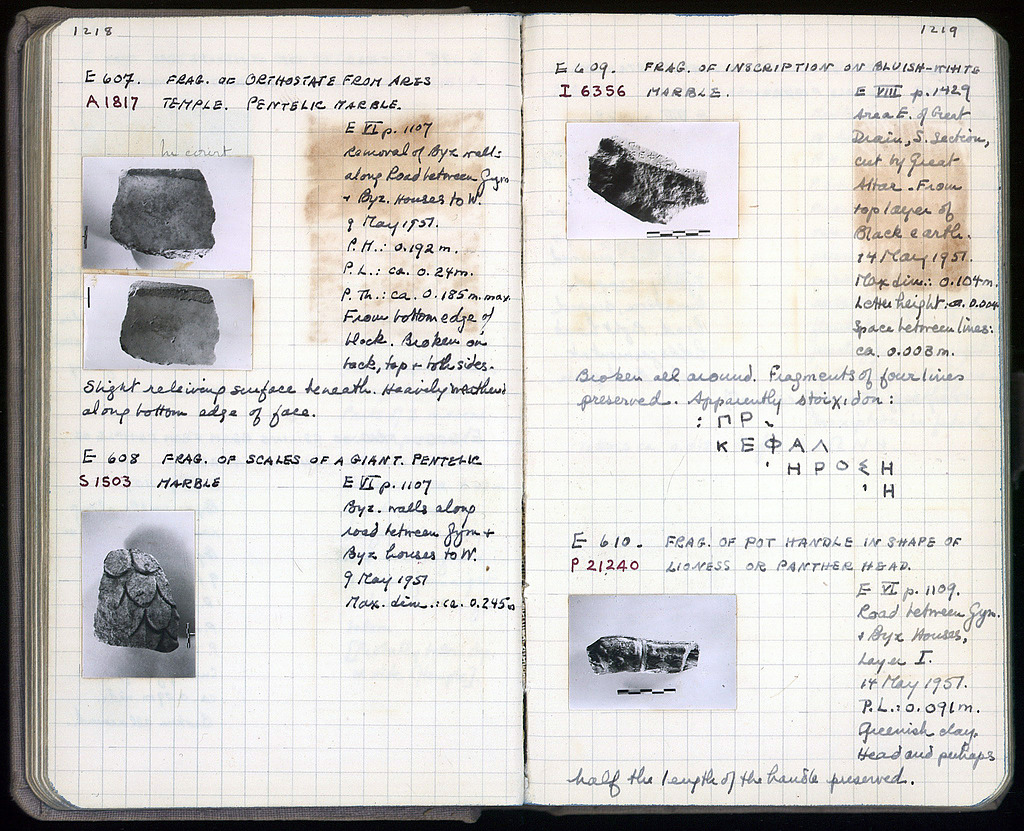 1218
E 607. FRAG. OF ORTHOSTATE FROM ARES
A 1817 TEMPLE. PENTELIC MARBLE.
In court
E VI p. 1107
Removal of Byz walls
along Road between Gym
+ Byz. Houses to W.
9 May 1951.
P.H.: 0.192 m.
P.L.: ca. 0.24 m.
P.Th.: ca. 0.185 m. max.
From bottom edge of
block. Broken on
back, top + both sides.
Slight relieving surface beneath. Heavily weathered
along bottom edge of face.
E 608 FRAG. OF SCALES OF A GIANT. PENTELIC
S 1503 MARBLE
E VI p. 1107
Byz. walls along
road between Gym +
Byz houses to W.
9 May 1951
Max. dim.: ca. 0.245 m
1219
E 609. FRAG. OF INSCRIPTION ON BLUISH-WHITE
I 6356 MARBLE.
E VIII p. 1429
Area E. of Great
Drain, S. Section,
cut by Great
Altar. From
top layer of
Black earth.
14 May 1951.
Max dim.: 0.104 m.
Letter height: ca. 0.004
Space between lines:
ca. 0.003 m.
Broken all around. Fragments of four lines
preserved. Apparently stoichidon:
ΠΡ
ΚΕΦΑΛ
ΗΡΟΣΗ
Η
E 610. FRAG. OF POT HANDLE IN SHAPE OF
P 21240 LIONESS OR PANTHER HEAD.
E VI p. 1109.
Road between Gym.
+ Byz Houses,
Layer I.
14 May 1951.
P.L.: 0.091 m.
Greenish clay.
Head and perhaps
half the length of the handle preserved.